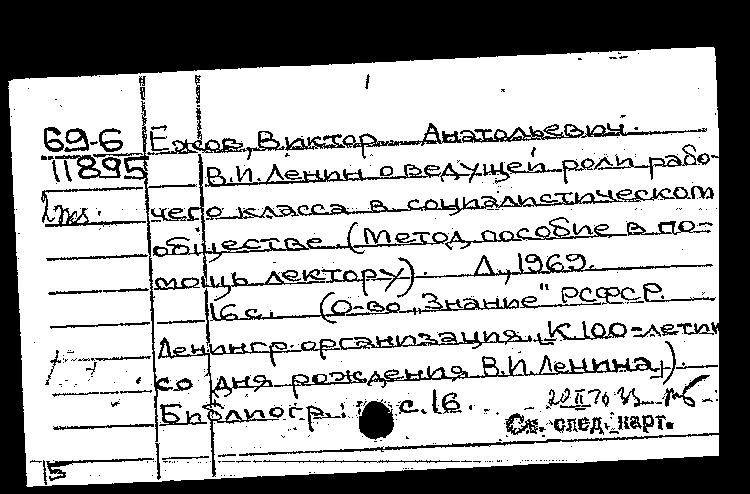 69-6 Ежов, Виктор Анатольевич.
11895 В.И. Ленин о ведущей роли рабо-
2 экз. чего класса в социалистическом
обществе. (Метод. пособие в по-
мощь лектору). Л., 1969.
16 с. (О-во „Знание" РСФСР.
Ленингр. организация. „К 100-летию
со дня рождения В.И. Ленина„).
Библиогр.: с. 16.
См. след. карт.